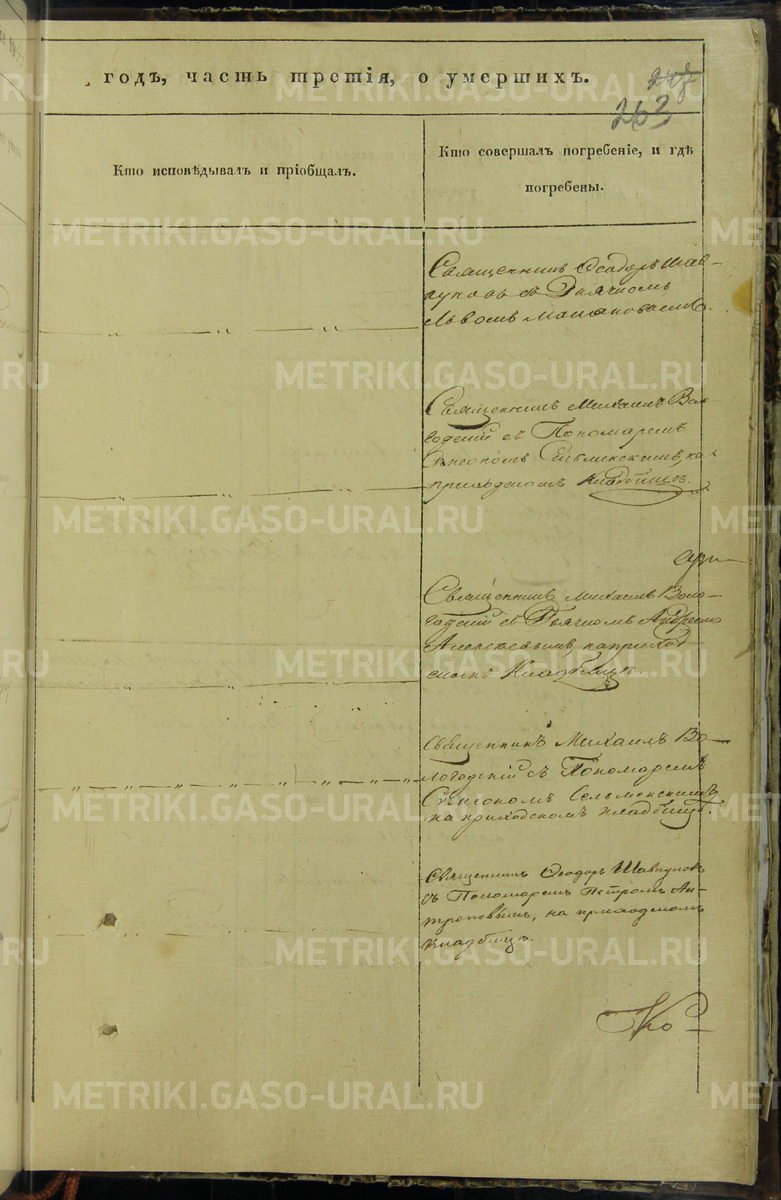 годъ, часть третія, о умершихъ.
263
Кто исповѣдывалъ и пріобщалъ.
Кто совершалъ погребеніе, и гдѣ
погребены.
Священникъ Ѳеодоръ Шав-
куновъ съ Дьячкомъ
Львомъ
Священникъ Михаилъ Воло-
годскій съ Пономаремъ
Сѵмеономъ Сельменскимъ, на
приходскомъ кладбищѣ.
Священникъ Михаилъ Воло-
годскій съ Дьячкомъ Андреемъ
Алексѣевымъ, на приход-
скомъ кладбищѣ
Священникъ Михаилъ Во-
логодскій съ Пономаремъ
Сѵмеономъ Сельменскимъ,
на приходскомъ кладбищѣ.
Священникъ Ѳеодоръ Шавкуновъ
съ Пономаремъ Петромъ Ан-
троповымъ, на приходскомъ
кладбищѣ.
METRIKI.GASO-URAL.RU